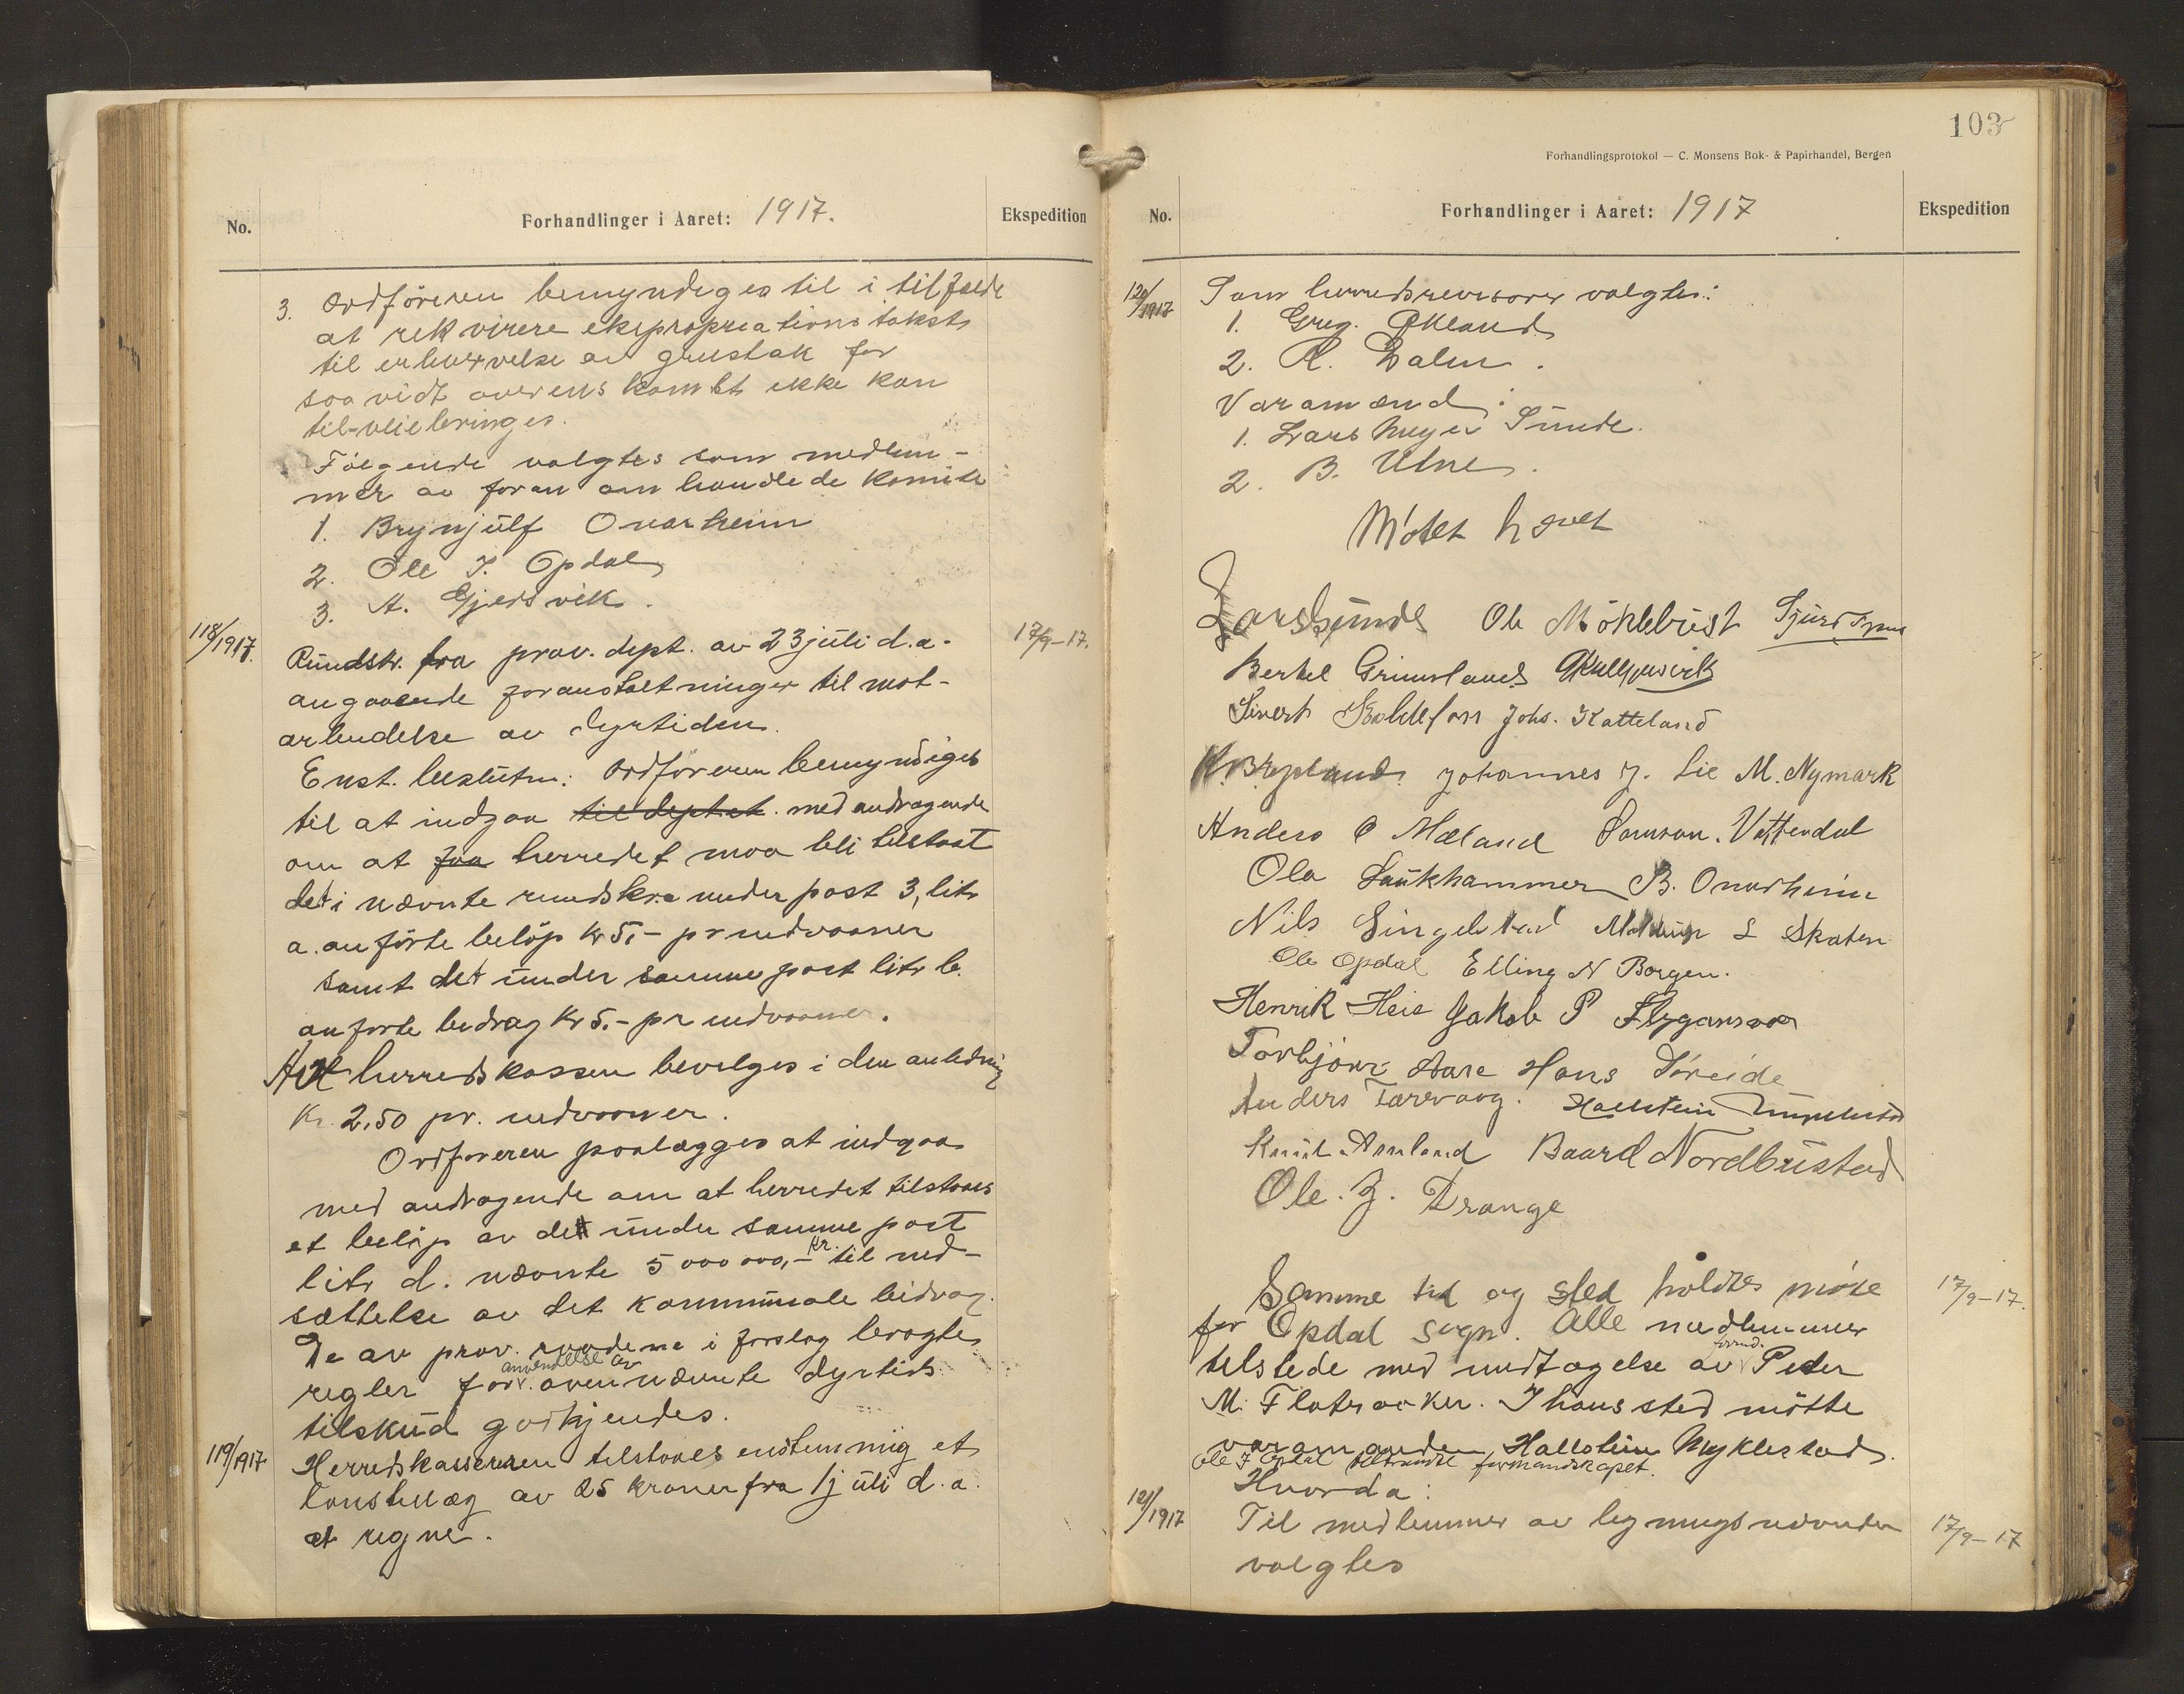 No.
Forhandlinger i Aaret: 1917.
Ekspedition
3. Ordföreren bemyndiges til i tilfælde
at rekvirere ekspropriationstakst
til erhvervelse av grustak for
saavidt overenskomst ikke kan
tilveiebringes.
Følgende valgtes som medlem-
mer av foran omhandlede komite
1. Brynjulf Onarheim
2. Ole J. Opdal
3. A. Gjersvik.
118/1917.
Rundskr. fra prov. dept. av 23 juli d.a.
17/9-17.
angaaende foranstaltninger til mot-
arbeidelse av dyrtiden.
Enst. beslutn: Ordföreren bemyndiges
til at indgaa til deptet med andragende
om at faa herredet maa bli tilstaat
det i nævnte rundskr. under post 3, litr
a. anförte belöp kr 5,- pr indvaaner
samt det under samme post litr b.
anförte bidrag kr 5.- pr indvaaner.
Av herredskassen bevilges i den anledning
Kr. 2,50 pr. indvaaner.
Ordføreren paalægges at indgaa
med andragende om at herredet tilstaaes
et belöp av det under samme post
litr d. nævnte 5 000 000,- kr. til ned-
sættelse av det kommunale bidrag.
De av prov. raadene i forslag bragte
regler for anvendelse av ovennævnte dyrtids
tilskud godkjendes.
119/1917
Herredskassereren tilstaaes enstemmig et
lönstillæg av 25 kroner fra 1 juli d.a.
at regne.
103
Forhandlingsprotokol — C. Monsens Bok- & Papirhandel, Bergen
No.
Forhandlinger i Aaret: 1917
Ekspedition
120/1917
Som herredsrevisorer valgtes:
1. Greg. Økland
2. R. Dalen.
Varamænd:
1. Lars Meyer Sunde.
2. B. Ulne.
Møtet hævet
Lars Sunde Ole Möklebust Sjurd
Bertel Grimsland
Sivert Johs. Katteland
Johannes J. Lie M. Nymark
Anders O Mæland Samson Vattendal
Ola Laukhammer B. Onarheim
Nils Singelstad L Skaten
Ole Opdal Elling N Borgen.
Henrik Heie Jakob P Flygansvær
Torbjörn Aare Hans Söreide
Anders Tærevaag. Hallstein
Knut Amland Baard Nordbustad
Ole. J. Drange
Samme tid og sted holdtes møte
17/9-17.
for Opdal sogn. Alle medlemmer
tilstede med undtagelse av forml. Peder
M. Flateraaker. I hans sted mötte
varamanden Hallstein Myklestad.
Ole J Opdal tiltraadte formandskapet.
Hvorda:
121/1917
Til medlemmer av ligningsnævnden
17/9-17
valgtes